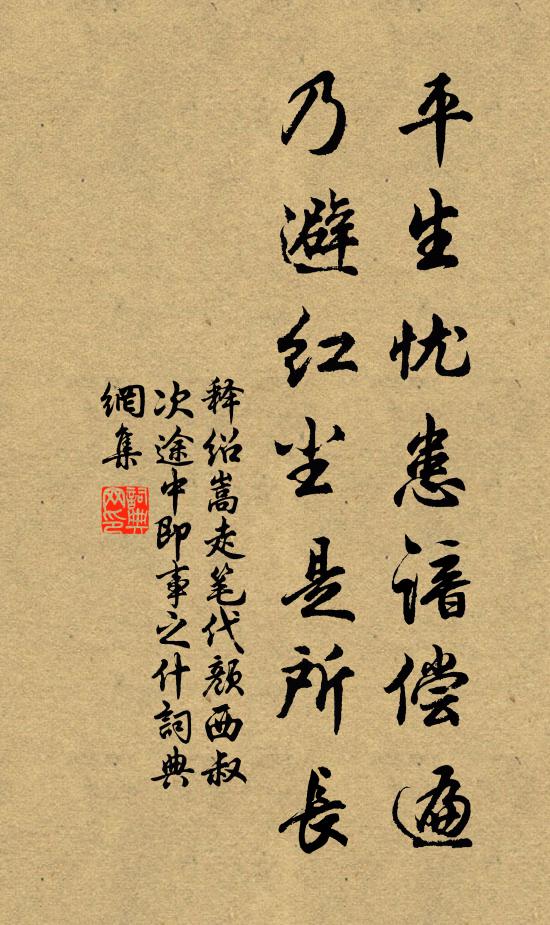 平生忧患谙偿遍
乃避红尘是所長
释绍嵩走笔代颜西叔
次途中即事之什詞典
網集
詞典
网印